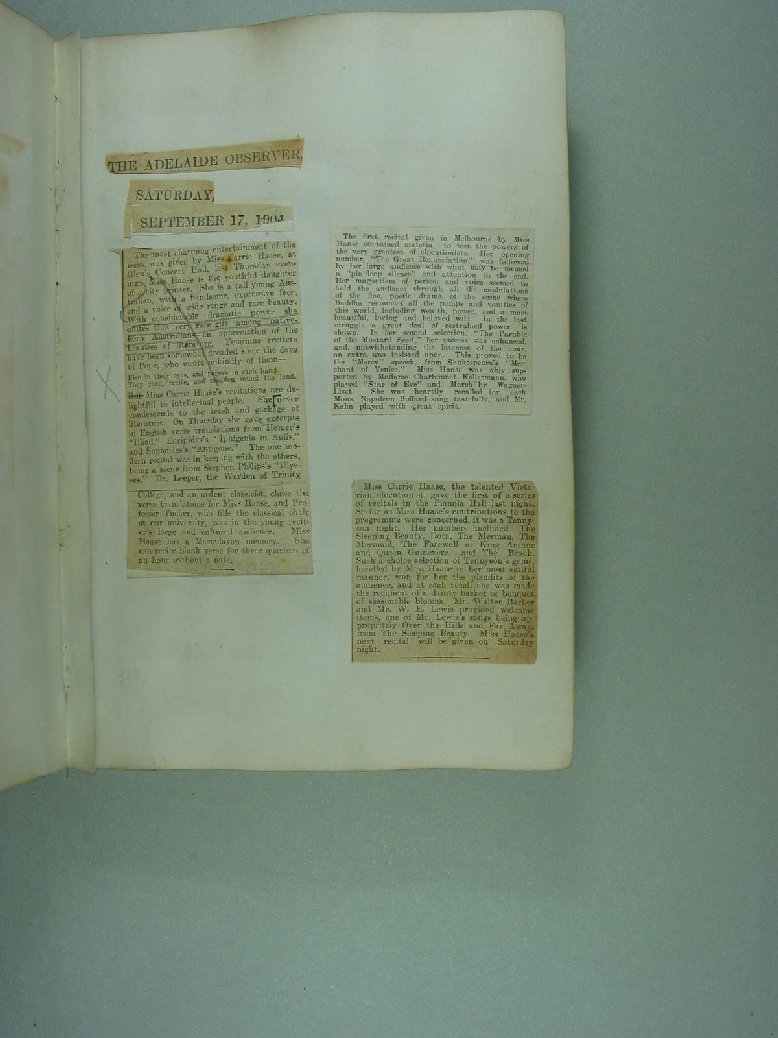 THE ADELAIDE OBSERVER,
SATURDAY,
SEPTEMBER 17, 1904
The most charming entertainment of the
week was given by Miss Carrie Haase, at
Glen's Concert Hall, last Thursday even-
ing. Miss Haase is the youthful daughter
of a printer. She is a tall young Aus-
tralian, with a handsome, expressive face,
and a voice of wide range and rare beauty.
With considerable dramatic power she
unites that very rare gift among native-
born Australians—an appreciation of the
beauties of literature. Feminine reciters
have been somewhat dreaded since the days
of Pope, who wrote unkindly of them—
Fire in their eyes, and papers in each hand
They rave, recite, and madden round the land.
But Miss Carrie Haase's recitations are de-
lightful to intellectual people. She never
condescends to the trash and garbage of
literature. On Thursday she gave excerpts
in English verse translations from Homer's
"Iliad," Euripides's "Iphigenia in Aulis,"
and Sophocles's "Antigone." The one mo-
dern recital was in keeping with the others,
being a scene from Stephen Philips's "Ulys-
ses." Dr. Leeper, the Warden of Trinity
College, and an ardent classicist, chose the
verse translations for Miss Haase, and Pro-
fessor Tucker, who fills the classical chair
at our university, was in the young recit-
er's large and cultured audience. Miss
Haase has a Macaulayan memory. She
can recite blank verse for three quarters of
an hour without a note.
The first recital given in Melbourne by Miss
Haase contained material to test the powers of
the very greatest of elocutionists. Her opening
number, "The Great Renunciation," was followed
by her large audience with what may be termed
a "pin-drop silence" and attention to the end.
Her magnetism of person and voice seemed to
hold the audience through all the modulations
of the fine, poetic drama of the scene where
Buddha renounces all the pomps and vanities of
this world, including wealth, power, and a most
beautiful, loving and beloved wife. In the last
struggle a great deal of restrained power is
shown. In her second selection, "The Parable
of the Mustard Seed," her success was enhanced,
and, notwithstanding the lateness of the hour,
an extra was insisted upon. This proved to be
the "Mercy" speech, from Shakespeare's "Mer-
chant of Venice." Miss Haase was ably sup-
ported by Madame Charbonnet Kellermann, who
played "Star of Eve" and March by Wagner-
Liszt. She was heartily recalled for each
Mons. Napoleon Boffard sang tastefully, and Mr.
Kuhn played with great spirit.
Miss Carrie Haase, the talented Victo-
rian elocutionist, gave the first of a series
of recitals in the Pianola Hall last night.
So far as Miss Haase's contributions to the
programme were concerned, it was a Tenny-
son night. Her numbers included The
Sleeping Beauty, Dora, The Merman, The
Mermaid, The Farewell of King Arthur
and Queen Guinevere, and The Brook.
Such a choice selection of Tennyson's gems,
handled by Miss Haase in her most skilful
manner, won for her the plaudits of the
audience, and at each recall she was made
the recipient of a dainty basket or bouquet
of seasonable blooms. Mr. Walter Barker
and Mr. W. E. Lewis provided welcome
items, one of Mr. Lewis's songs being ap-
propriately Over the Hills and Far Away,
from The Sleeping Beauty. Miss Haase's
next recital will be given on Saturday
night.